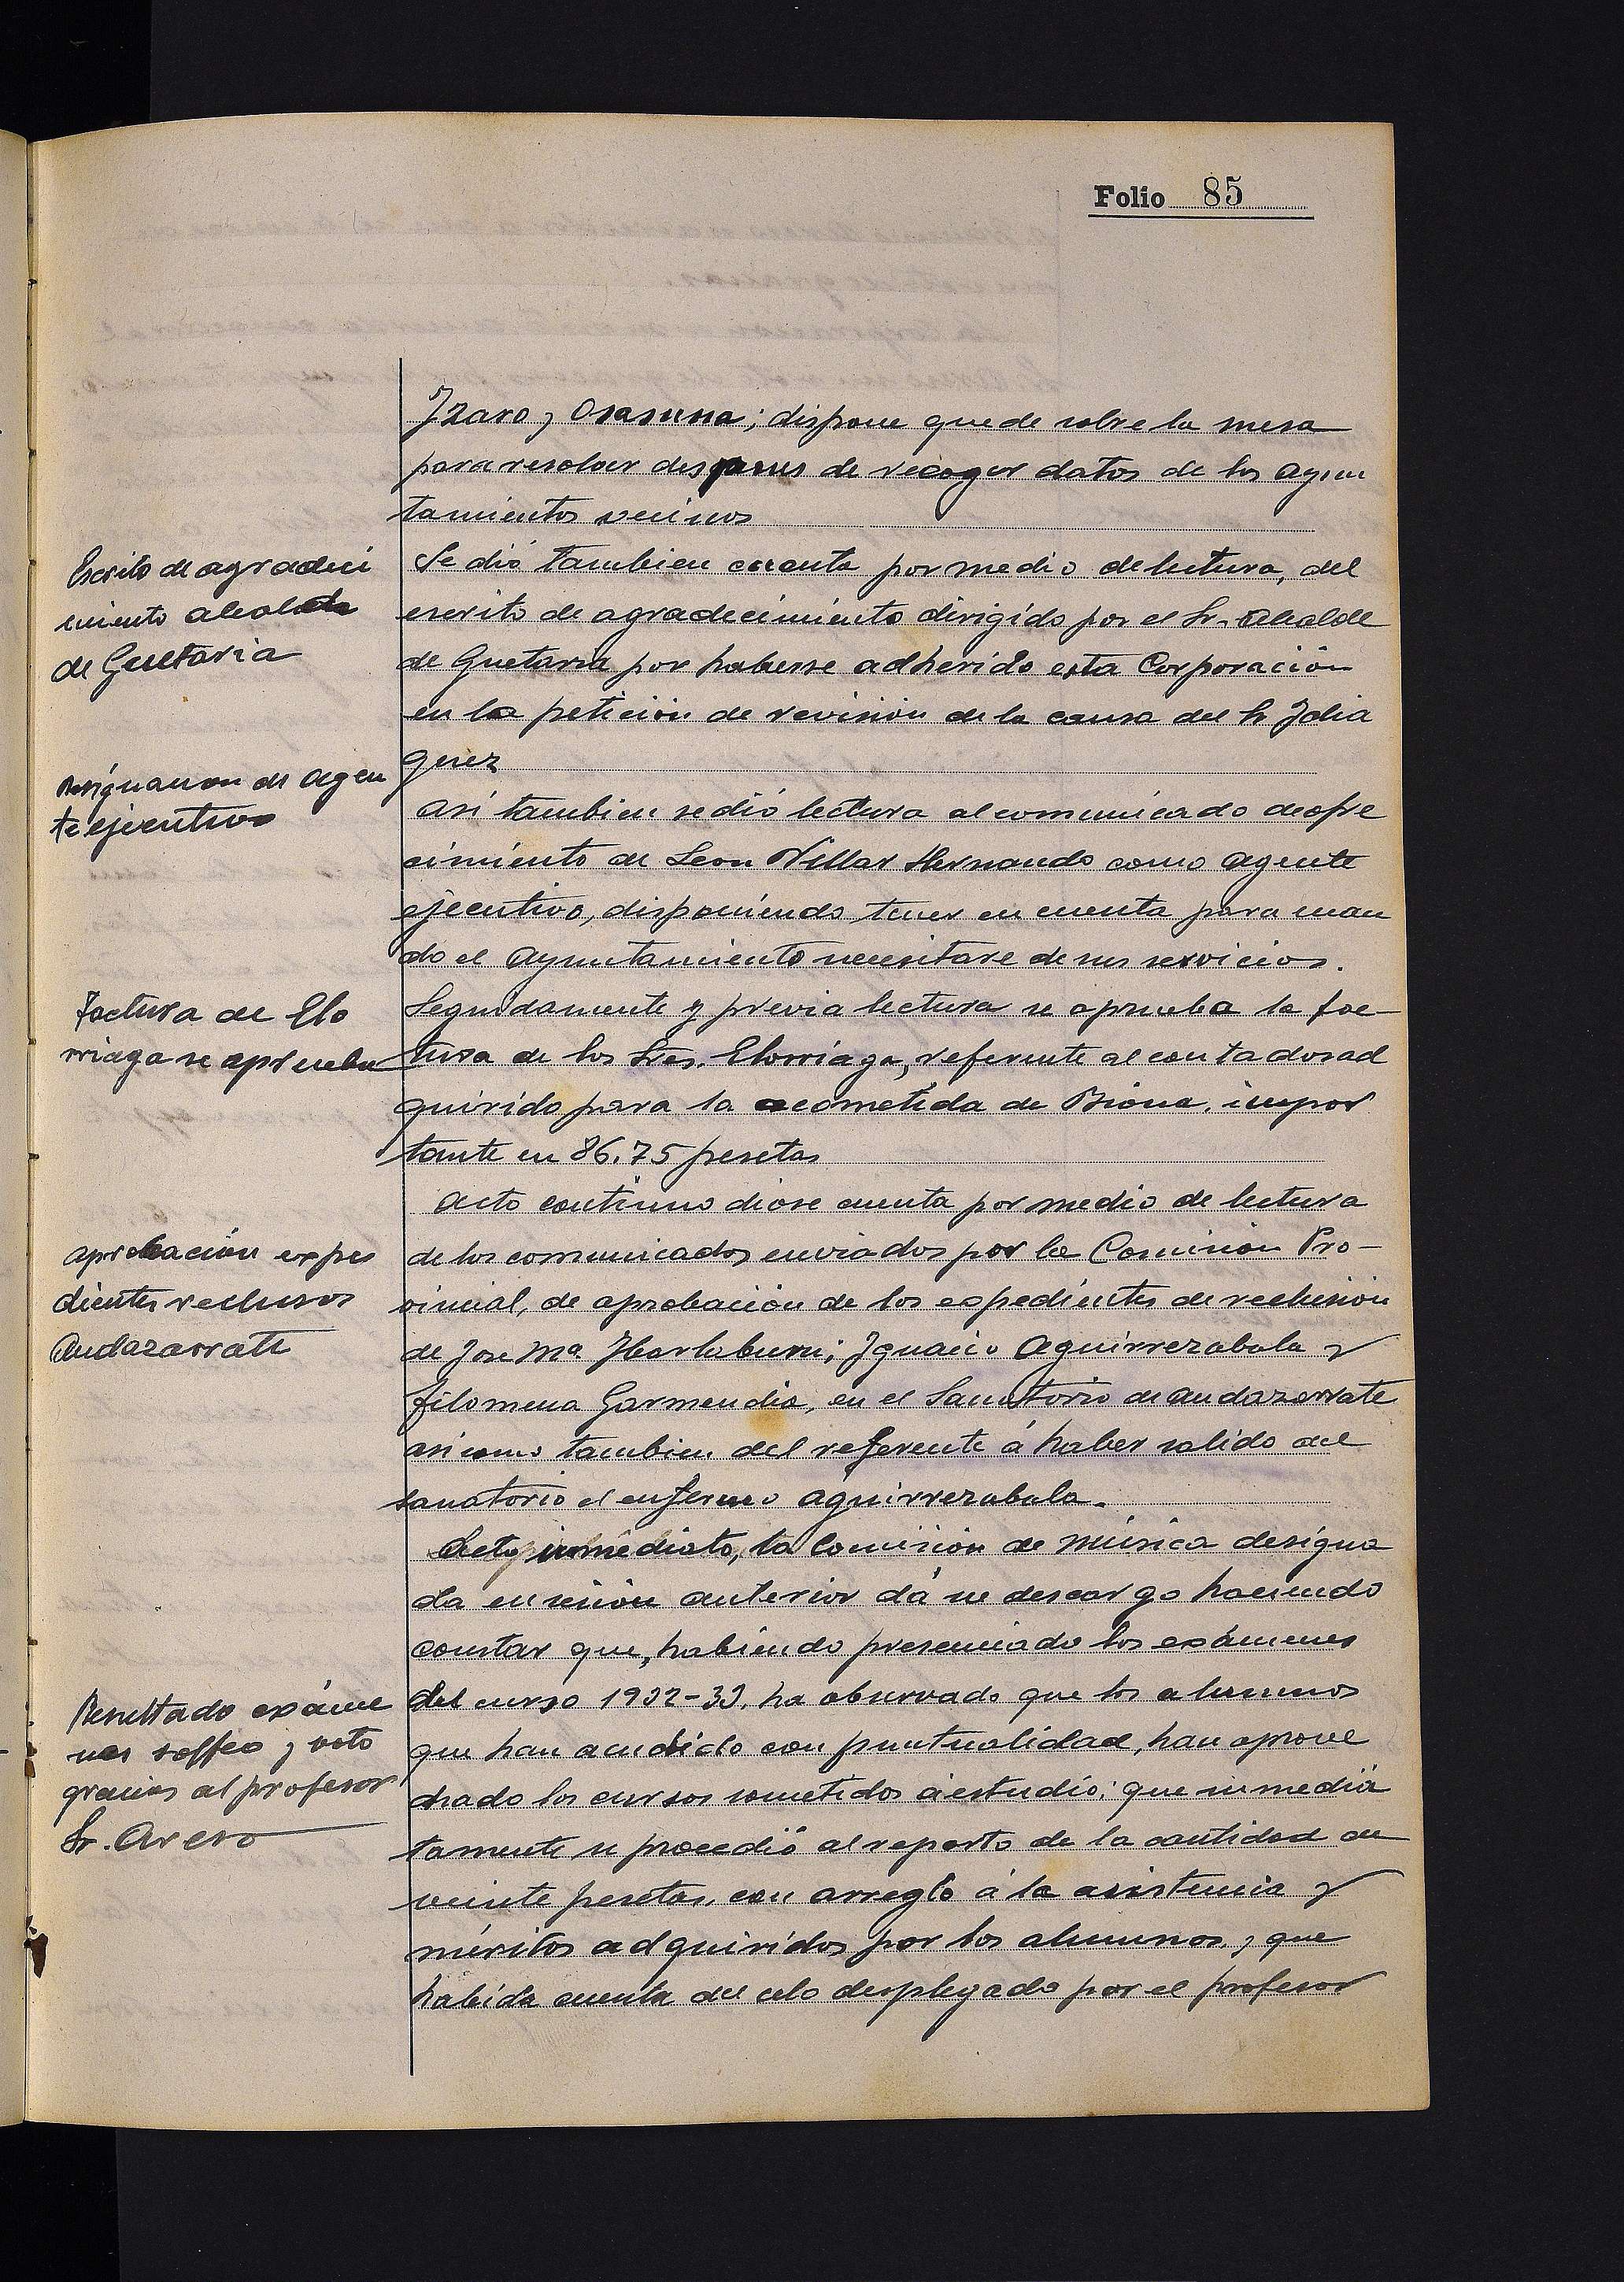 Folio 85
Izaro y Osasuna; dispone quede sobre la mesa
para resolver despues de recoger datos de los ayun
tamientos vecinos
Escrito de agradeci
miento alcalde
de Guetaria
Se dió tambien cuenta por medio de lectura, del
escrito de agradecimiento dirigido por el Sr. Alcalde
de Guetaria por haberse adherido esta Corporación
en la petición de revisión de la causa del Sr Idia
quez
Asignacion de agen
te ejecutivo
Asi tambien se dió lectura al comunicado de ofre
cimiento de Leon Villar Hernando como agente
ejecutivo, disponiendo tener en cuenta para cuan
do el Ayuntamiento necesitare de sus servicios.
Factura de Elo
rriaga se aprueba
Seguidamente y previa lectura se aprueba la fac-
tura de los Sres. Elorriaga, referente al contador ad
quirido para la acometida de Biona, impor
tante en 86,75 pesetas
Acto continuo diose cuenta por medio de lectura
aprobación expe
dientes reclusos
Andazarrate
de los comunicados enviados por la Comisión Pro-
vincial, de aprobación de los expedientes de reclusión
de Jose Mª Ibarlaburu; Ignacio Aguirrezabala y
Filomena Garmendia, en el Sanatorio de Andazarrate
asi como tambien del referente á haber salido del
sanatorio el enfermo Aguirrezabala.
Acto inmediato, la Comisión de Música designa
da en sesión anterior dá su descargo haciendo
constar que, habiendo presenciado los exámenes
Resultado exáme
nes solfeo y voto
gracias al profesor
Sr. Areso
del curso 1932-33, ha observado que los alumnos
que han acudido con puntualidad, han aprove
chado los cursos sometidos á estudio; que inmedia
tamente se procedió al reparto de la cantidad de
veinte pesetas, con arreglo á la asistencia y
méritos adquiridos por los alumnos, y que
habida cuenta del celo desplegado por el profesor